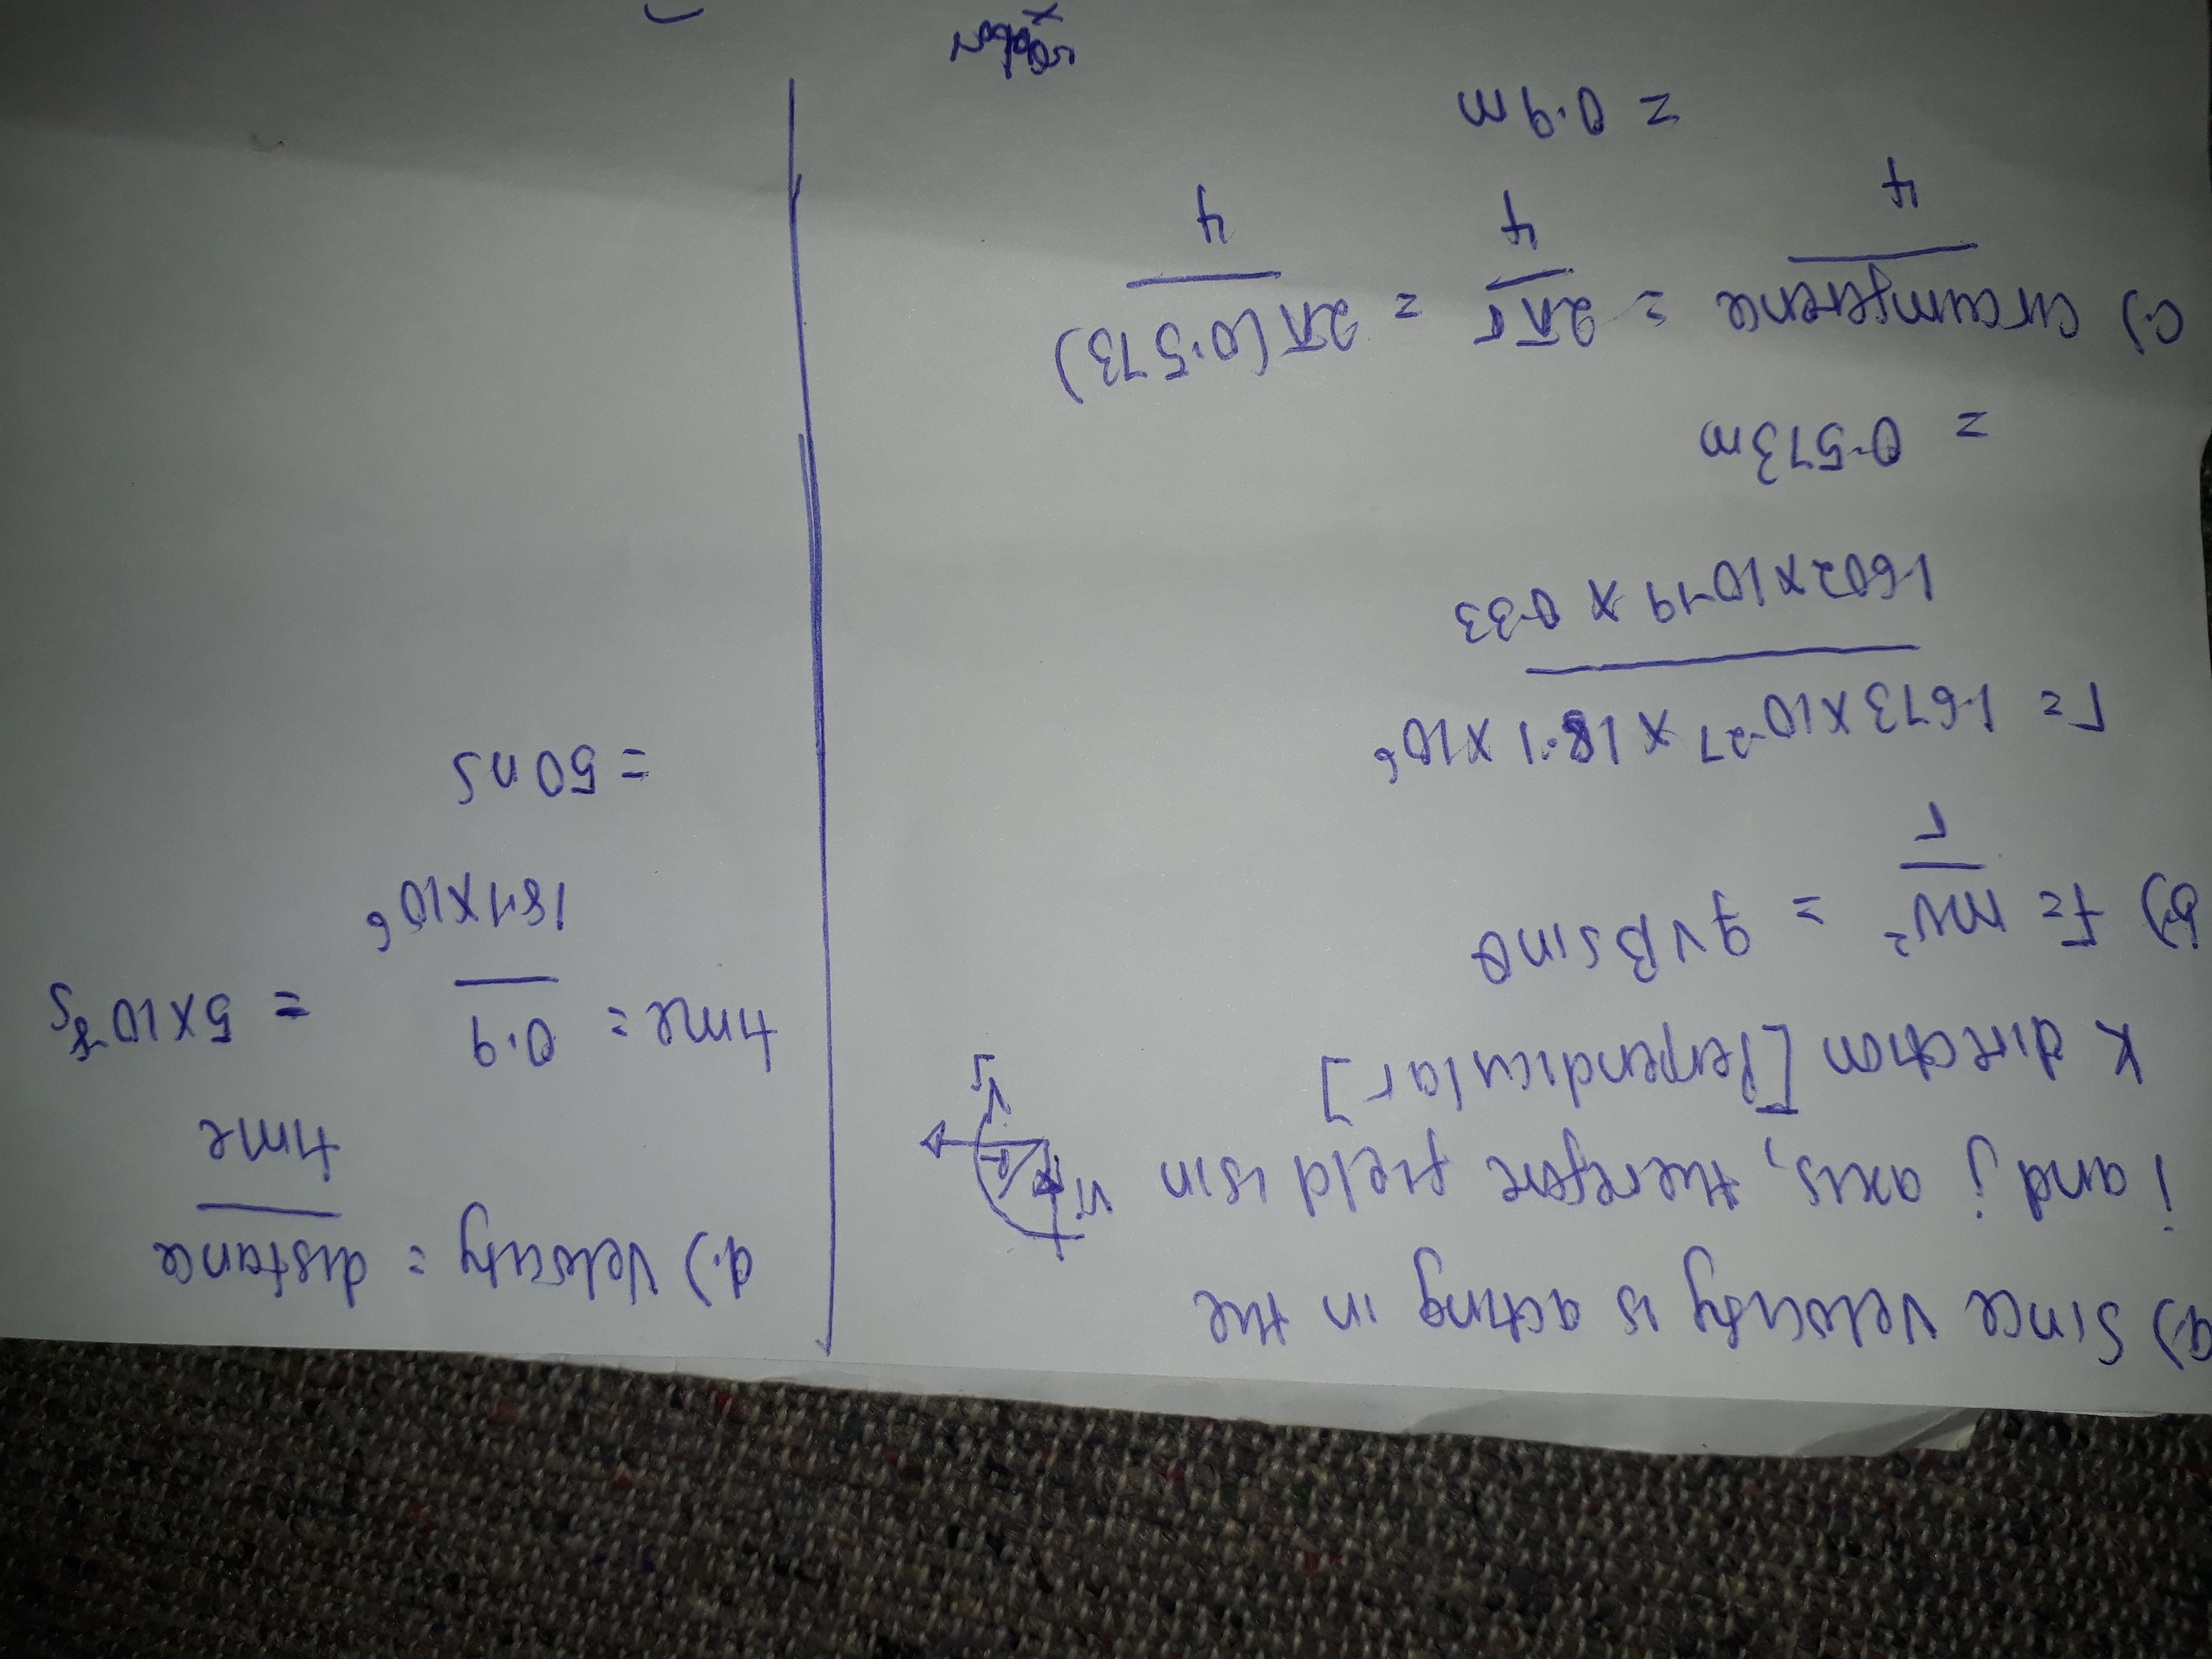 a.) Since velocity is acting in the
i and j axis, therefore field is in
k direction [Perpendicular]
b.) F = mv² = qvB sinθ
r
r = 1.673 x 10-27 x 18.1 x 10⁶
1.602 x 10-19 x 0.33
= 0.573m
c.) circumference = 2πr = 2π(0.573)
4 4 4
= 0.9m
d.) Velocity = distance
time
time = 0.9 = 5x10⁻⁸s
18.1 x 10⁶
= 50ns